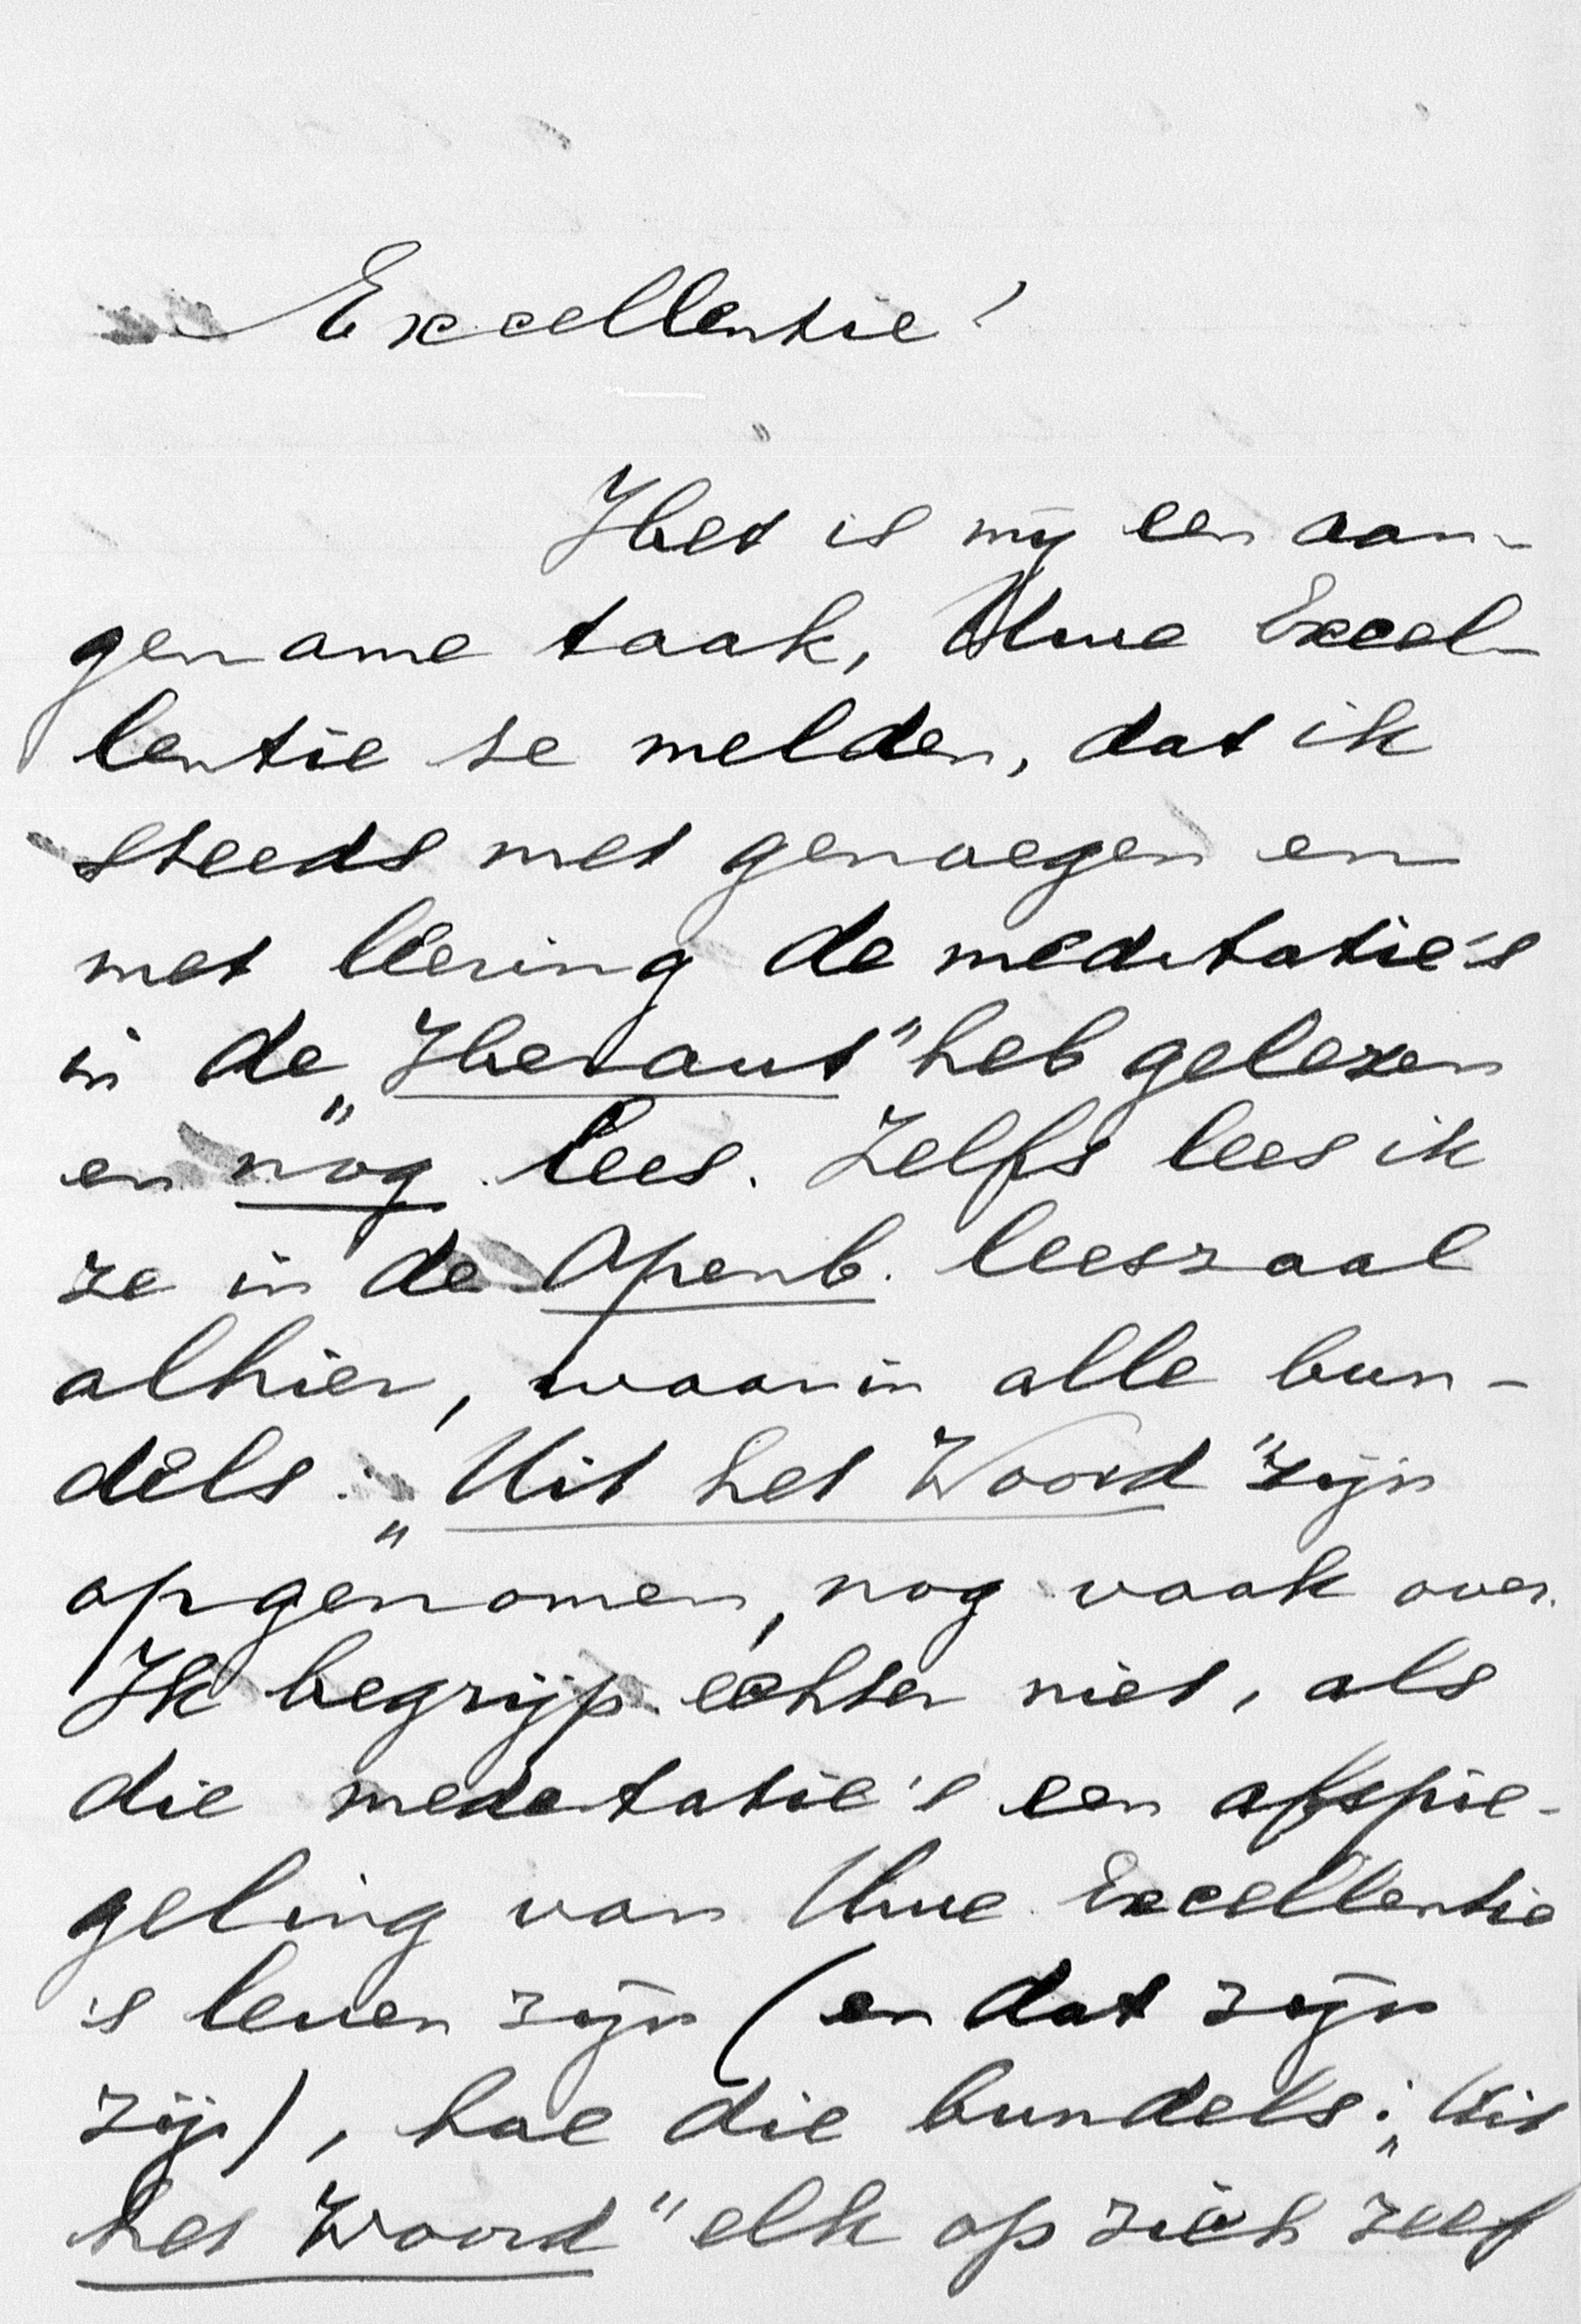 Excellentie!
Het is mij een aan-
gename taak, Uwe Excel-
lentie te melden, dat ik
steeds met genoegen en
met leering de meditatie's
in de „Heraut" heb gelezen
en nog lees. Zelfs lees ik
ze in de Openb. leeszaal
alhier, waarin alle bun-
dels: „Uit het Woord" zijn
opgenomen, nog vaak over.
Ik begrijp echter niet, als
die meditatie's een afspie-
geling van Uwe Excellentie
's leven zijn (en dat zijn
zij), hoe die bundels: „Uit
het Woord" elk op zich zelf